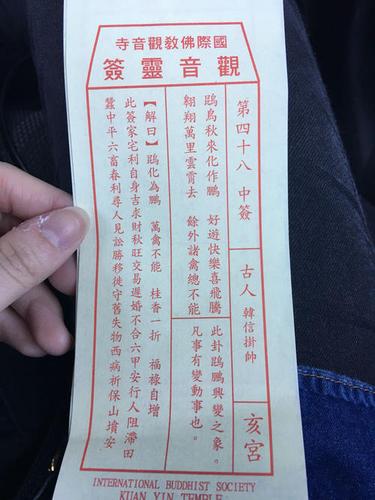 國際佛教觀音寺
觀音靈簽
第四十八 中簽
古人 韓信掛帥
亥宮
鴟鳥秋來化作鵬 好遊快樂喜飛騰
翱翔萬里雲霄去 餘外諸禽總不能
此卦鴟鵬興變之象。
凡事有變動事也。
【解曰】鴟化為鵬 萬禽不能 桂香一折 福祿自增
此簽家宅利自身吉求財秋旺交易遲婚不合六甲安行人阻滯田
蠶中平六畜春利尋人見訟勝移徙守舊失物西病祈保山墳安
INTERNATIONAL BUDDHIST SOCIETY
KUAN YIN TEMPLE